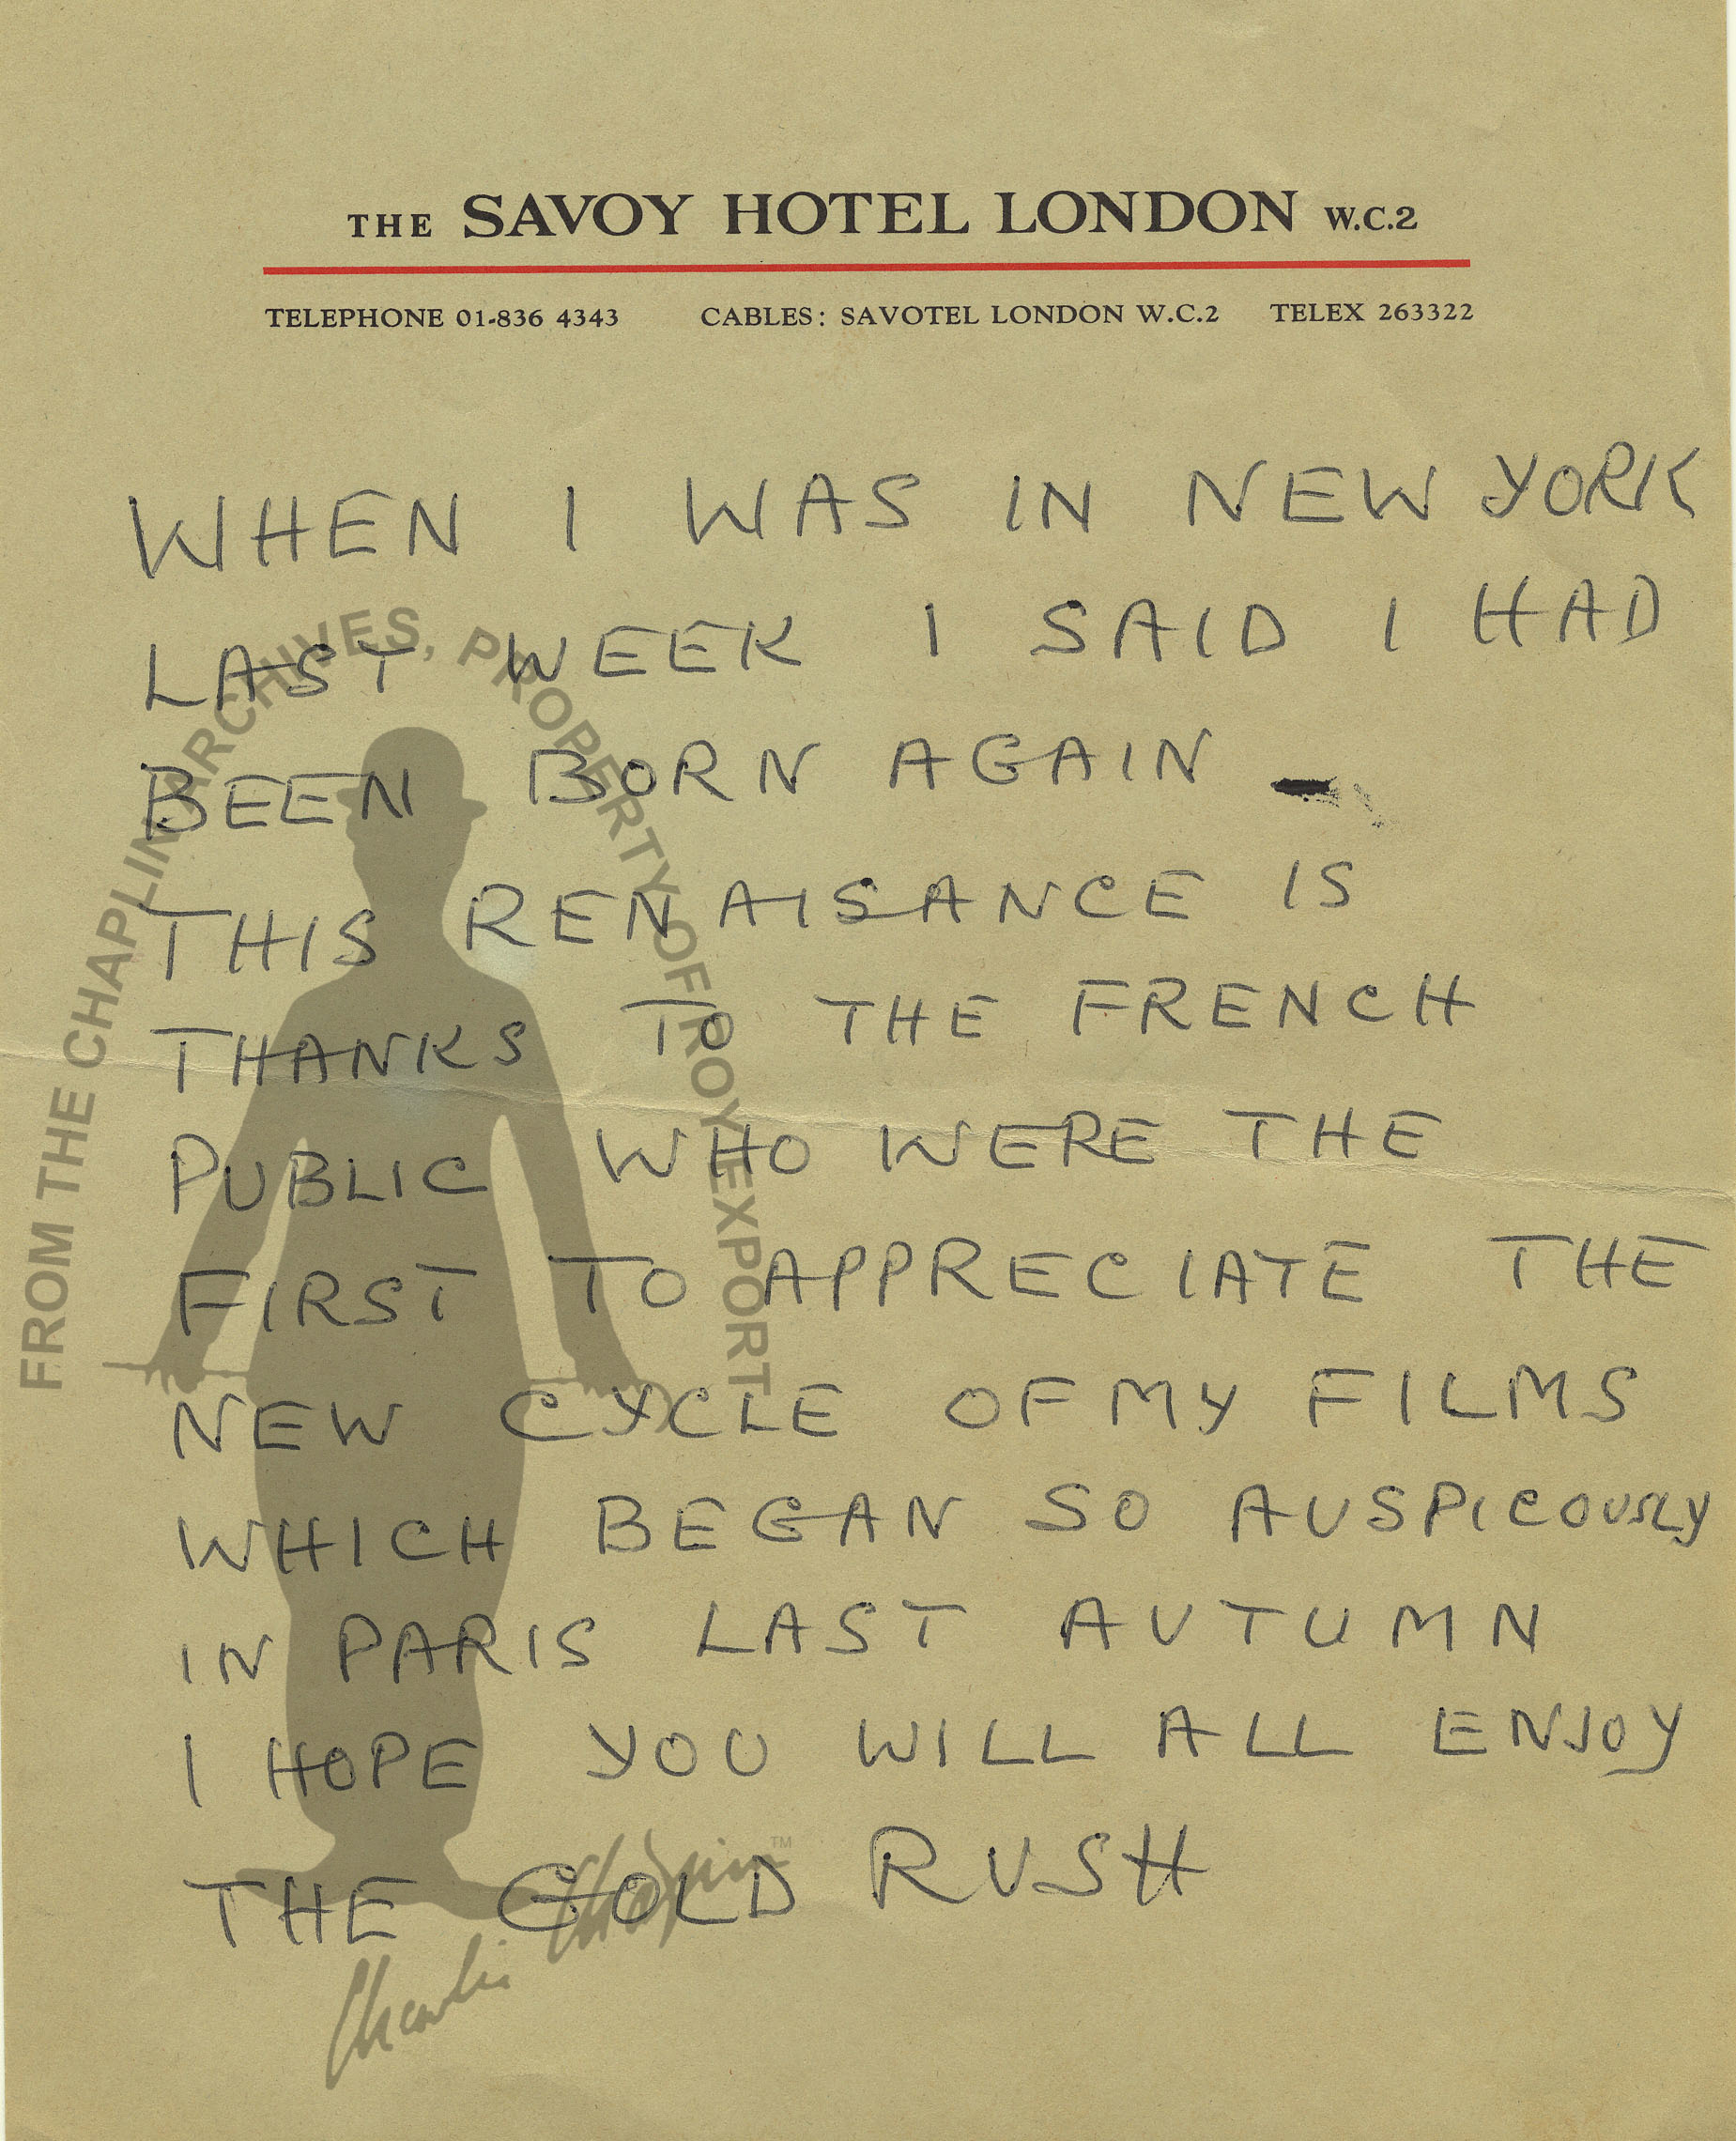 THE SAVOY HOTEL LONDON W.C.2
TELEPHONE 01-836 4343 CABLES: SAVOTEL LONDON W.C.2 TELEX 263322
WHEN I WAS IN NEW YORK
LAST WEEK I SAID I HAD
BEEN BORN AGAIN
THIS RENAISANCE IS
THANKS TO THE FRENCH
PUBLIC WHO WERE THE
FIRST TO APPRECIATE THE
NEW CYCLE OF MY FILMS
WHICH BEGAN SO AUSPICOUSLY
IN PARIS LAST AUTUMN
I HOPE YOU WILL ALL ENJOY
THE GOLD RUSH
FROM THE CHAPLIN ARCHIVES, PROPERTY OF ROY EXPORT
Charlie Chaplin™